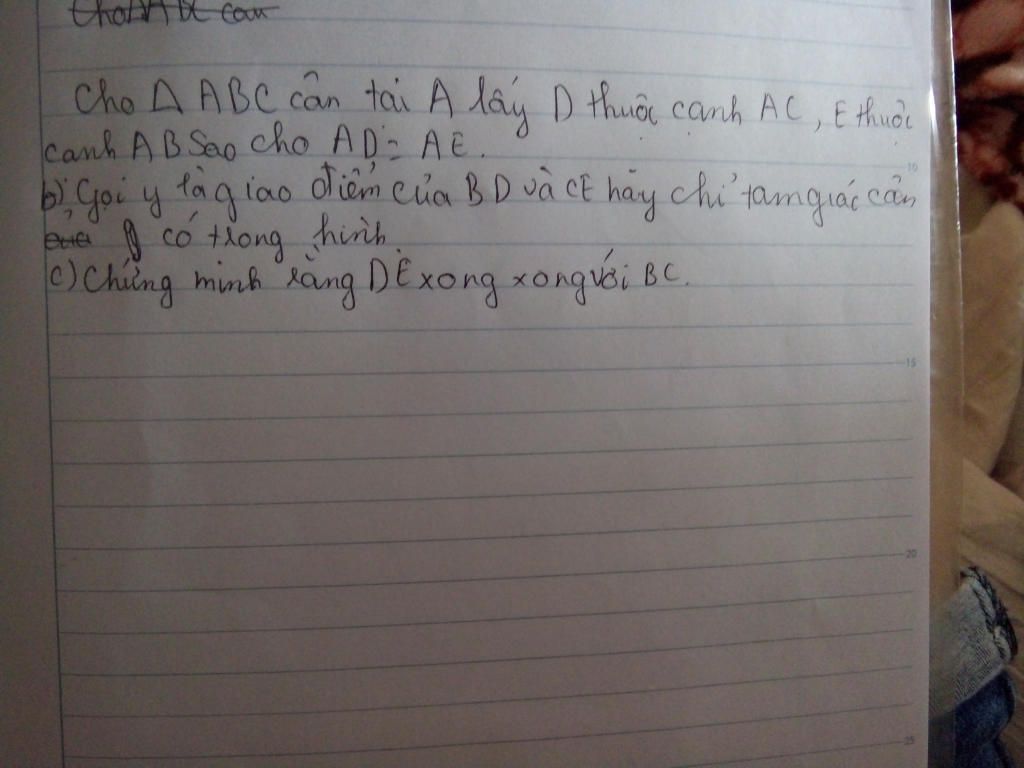 Cho Δ ABC cân
Cho Δ ABC cân tại A lấy D thuộc cạnh AC, E thuộc
cạnh AB sao cho AD = AE.
b) Gọi y là giao điểm của BD và CE hãy chỉ tam giác cân
có trong hình
c) Chứng minh rằng DE xong xong với BC.
10
15
20
25